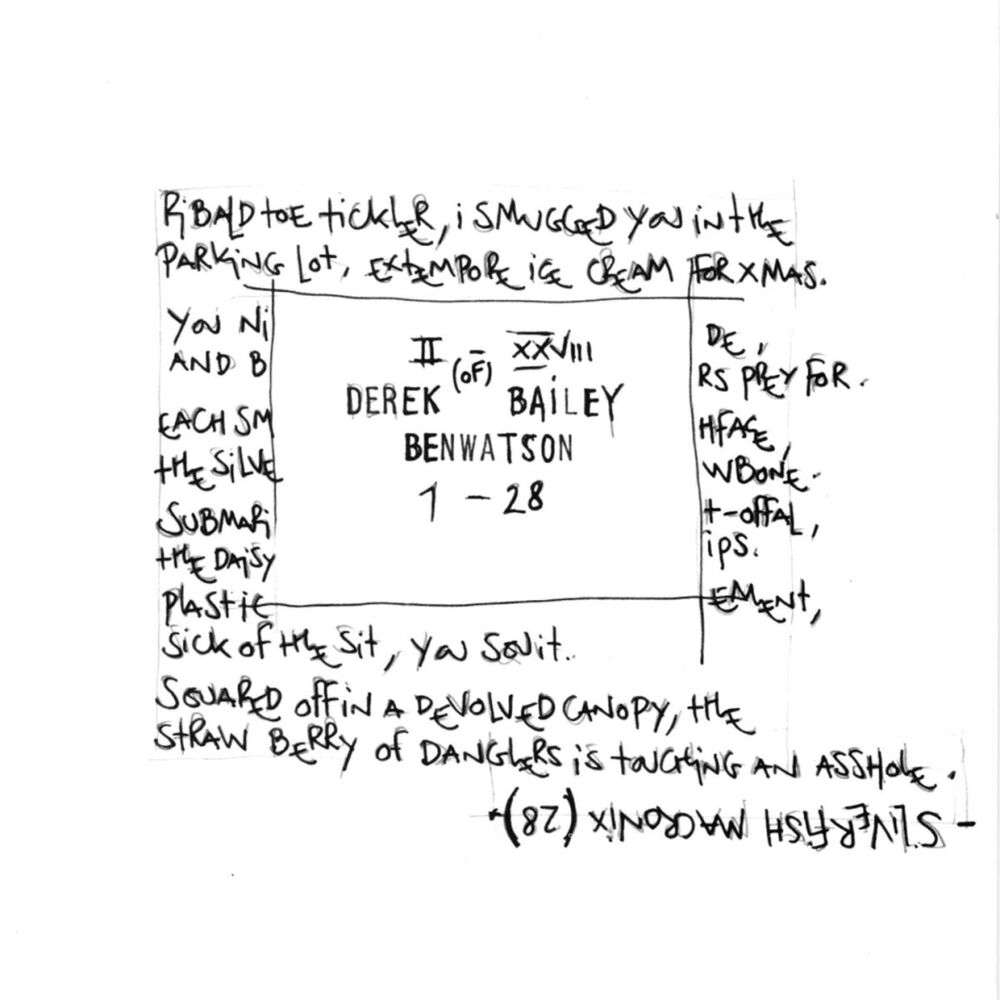 RiBALD toE tickLER, i SMUGGED YOU iN tHE
PARKiNG Lot, EXtEMPORE iCE CREAM FOR XMAS.
YOU Ni DE,
AND B RS PREY FOR.
EACH SM HFACE,
tHE SiLVE WBONE.
SUBMARi t-OffAL,
tHE DAiSY iPS.
PLAStiC EMENt,
II (OF) XXVIII
DEREK BAiLEY
BENWATSON
1 - 28
Sick of tHE Sit, YOU SOUit..
SQUARED Off iN A DEVOLVED CANOPY, tHE
StRAW BERRY of DANGLERS iS tOUCHiNG AN ASSHOLE.
- SILVERFISH MACRONIX (28) -